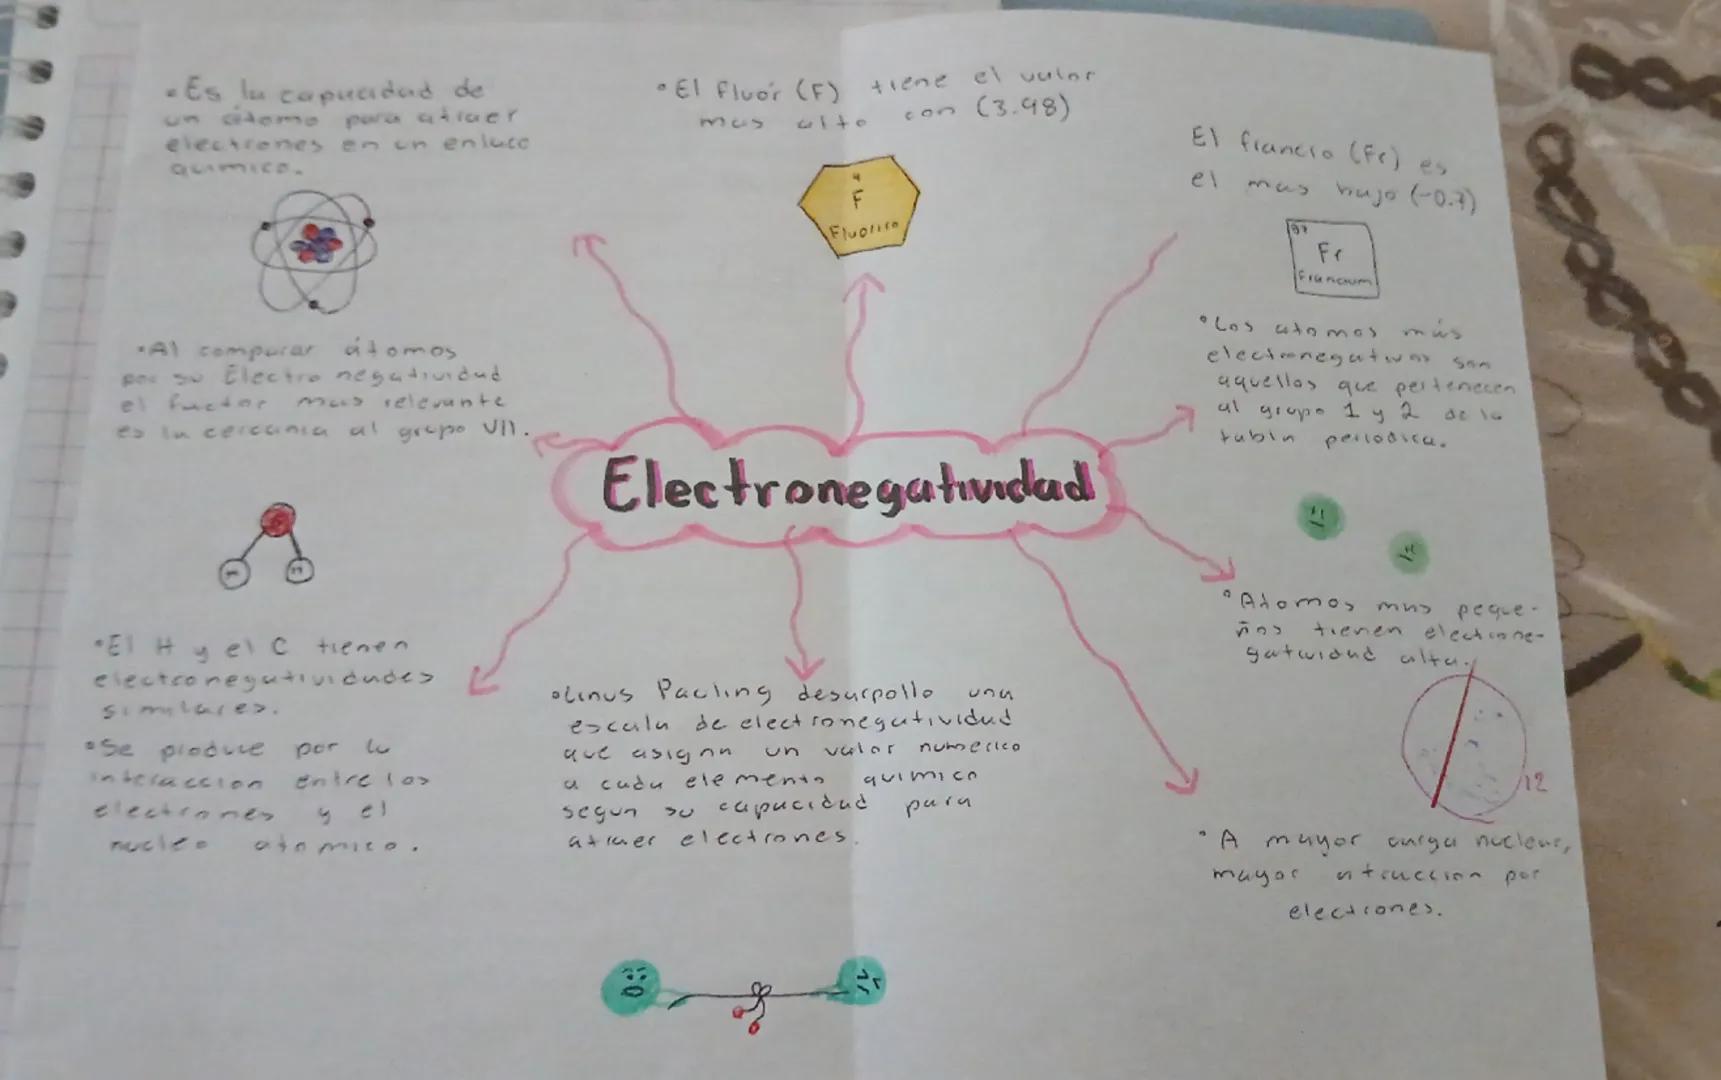 •Es la capacidad de
un átomo para atraer
electrones en un enlace
químico.
•El Fluór (F) tiene el valor
mas alto con (3.98)
9
F
Fluorine
El francio (Fr) es
el mas bajo (~0.7)
87
Fr
Francium
•Al comparar átomos
por su Electro negatividad
el factor mas relevante
es la cercania al grupo VII.
•Los atomos más
electronegativos son
aquellos que pertenecen
al grupo 1 y 2 de la
tabla periodica.
Electronegatividad
•Atomos mas peque-
ños tienen electrone-
gatividad alta.
•El H y el C tienen
electronegatividades
similares.
•Se produce por la
interaccion entre los
electrones y el
nucleo atomico.
•Linus Pauling desarpollo una
escala de electronegatividad
que asigna un valor numerico
a cada elemento quimico
segun su capacidad para
atraer electrones.
12
•A mayor carga nuclear,
mayor atraccion por
electrones.